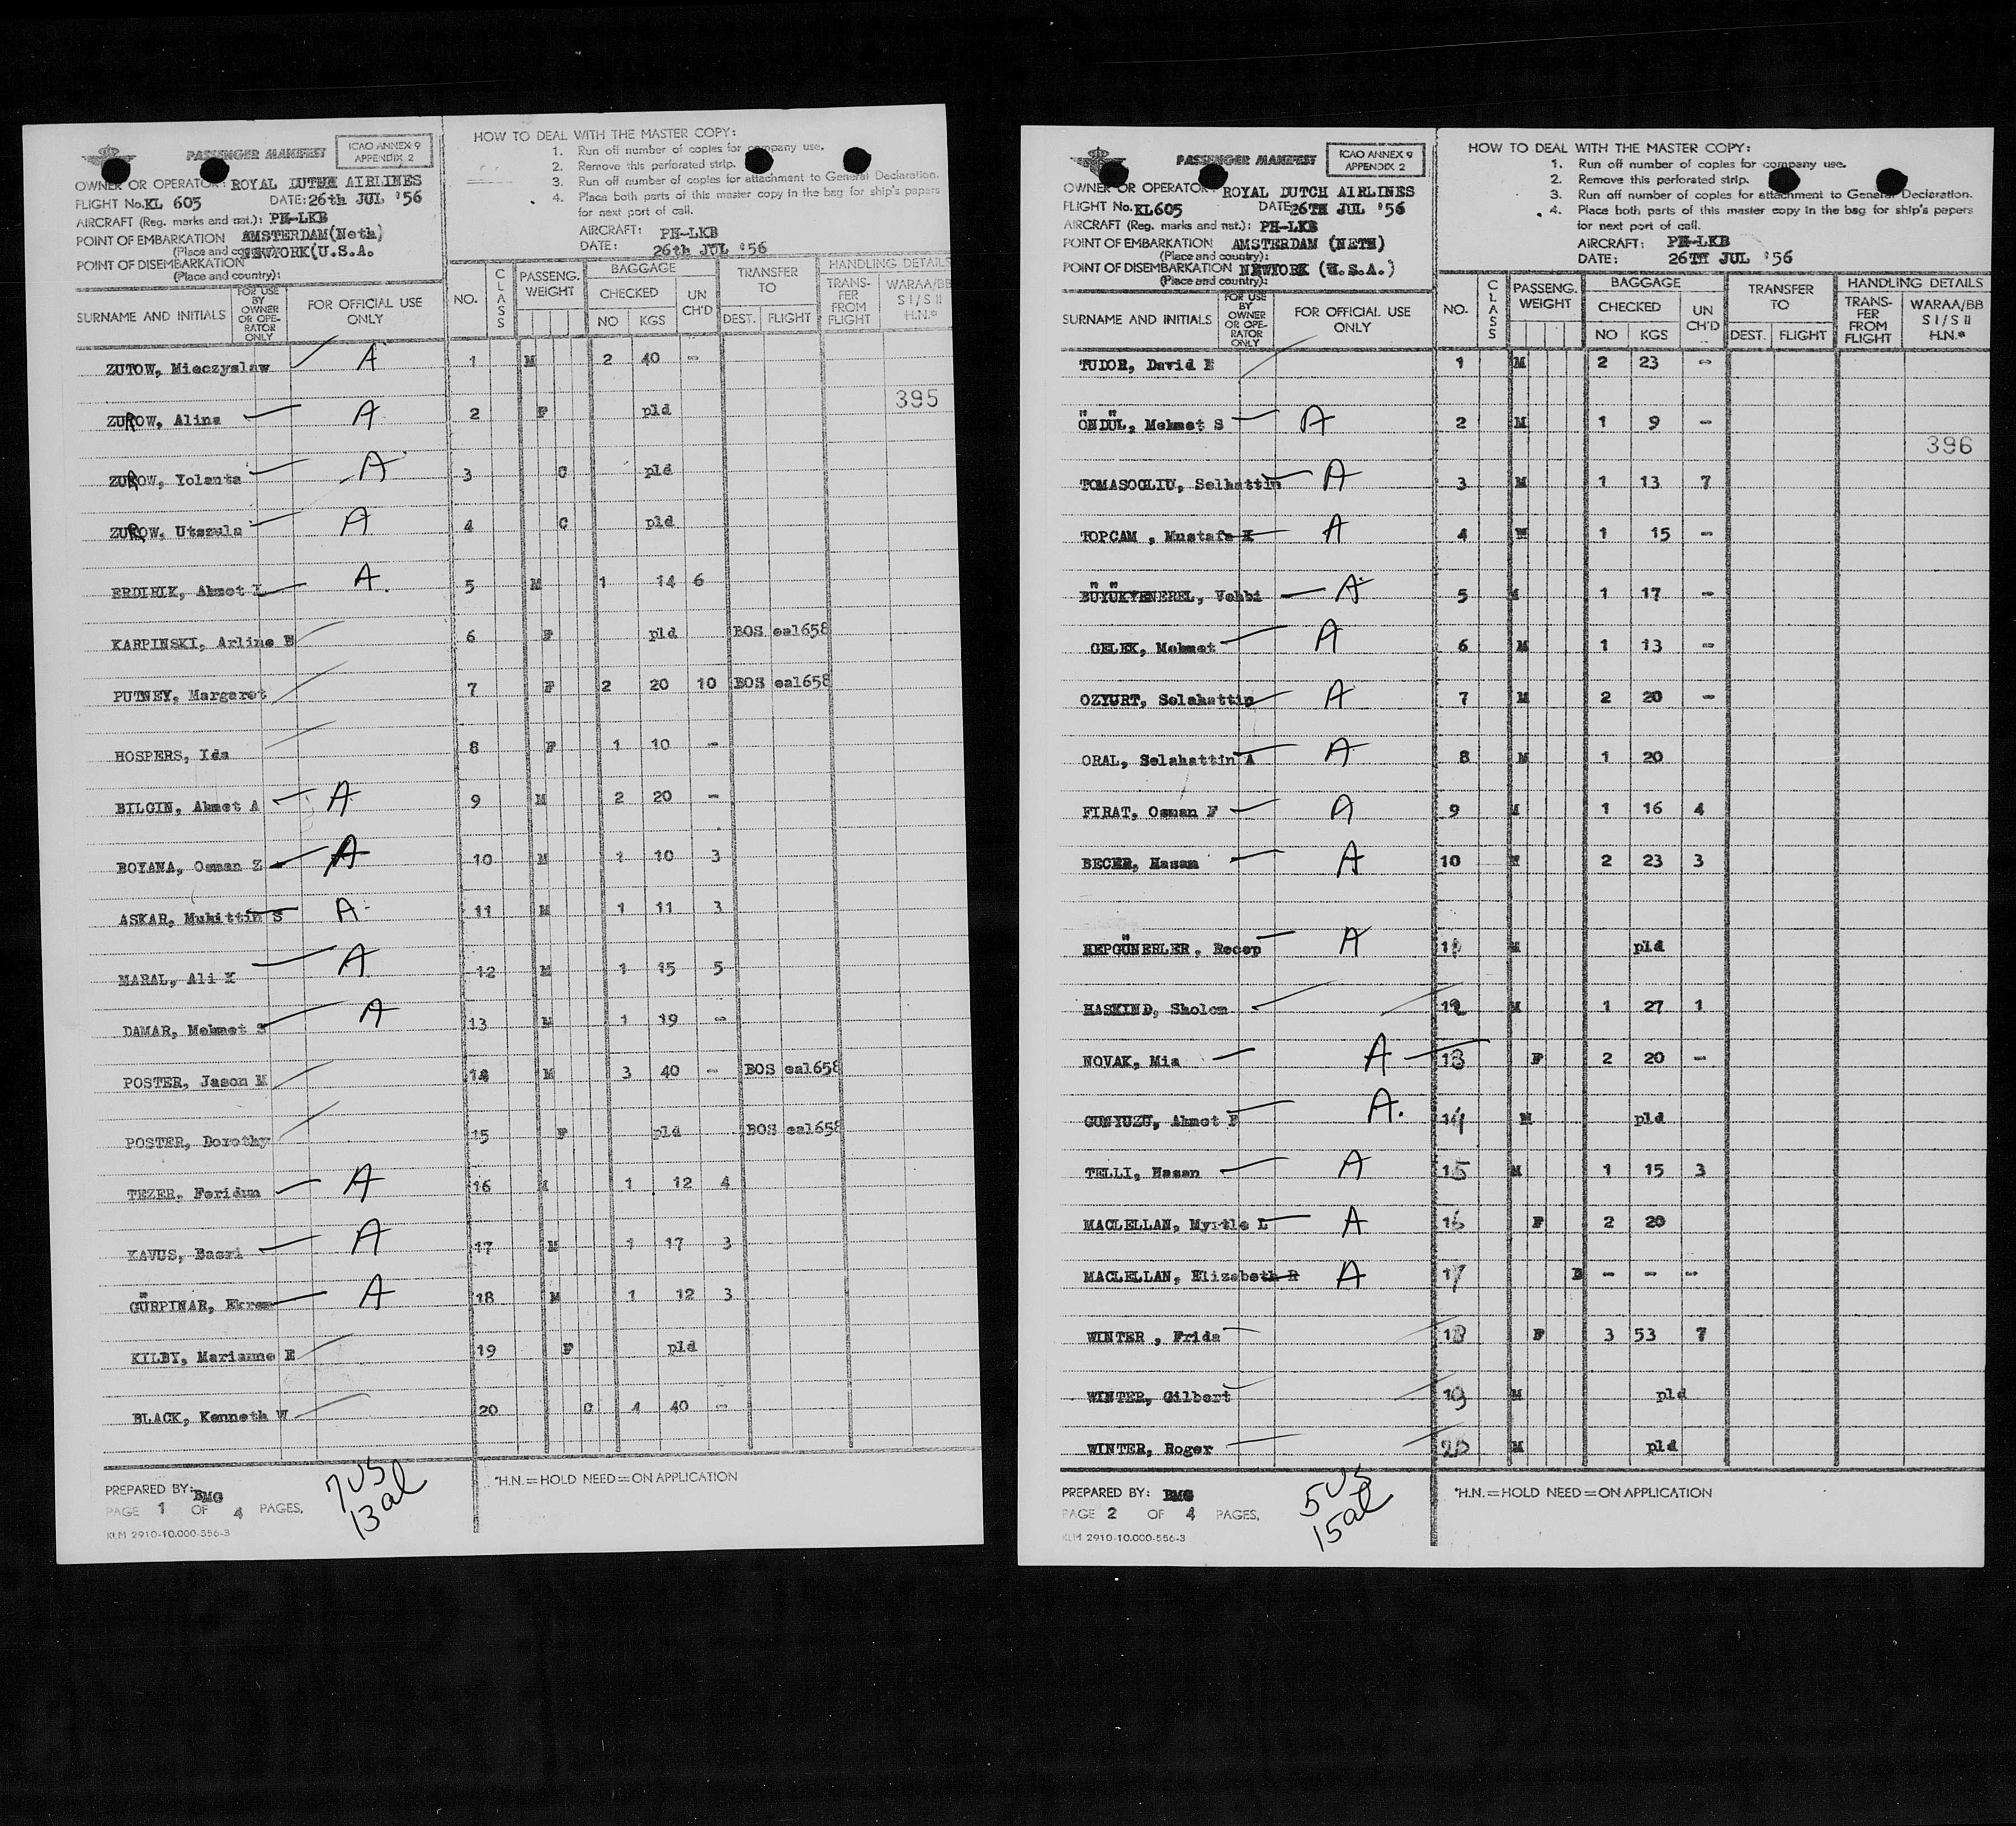 PASSENGER MANIFEST
ICAO ANNEX 9
APPENDIX 2
OWNER OR OPERATOR: ROYAL DUTCH AIRLINES
FLIGHT No. KL 605 DATE: 26th JUL '56
AIRCRAFT (Reg. marks and nat.): PH-LKB
POINT OF EMBARKATION AMSTERDAM(Neth)
(Place and country): NEWYORK(U.S.A.
POINT OF DISEMBARKATION
(Place and country):
HOW TO DEAL WITH THE MASTER COPY:
1. Run off number of copies for company use.
2. Remove this perforated strip.
3. Run off number of copies for attachment to General Declaration.
4. Place both parts of this master copy in the bag for ship's papers
for next port of call.
AIRCRAFT: PH-LKB
DATE: 26th JUL '56
SURNAME AND INITIALS
FOR USE BY OWNER OR OPE-RATOR ONLY
FOR OFFICIAL USE ONLY
NO. CLASS PASSENG. WEIGHT BAGGAGE CHECKED NO KGS UN CH'D TRANSFER TO DEST. FLIGHT HANDLING DETAILS TRANS-FER FROM FLIGHT WARAA/BB S I / S II H.N.*
ZUTOW, Mieczyslaw A 1 M 2 40 -
395
ZUROW, Alina A 2 F pld
ZUROW, Yolanta A 3 C pld
ZUROW, Utszula A 4 C pld
ERDIRIK, Ahmet I A 5 M 1 14 6
KARPINSKI, Arline B 6 F pld BOS eal658
PUTNEY, Margaret 7 F 2 20 10 BOS eal658
HOSPERS, Ida 8 F 1 10 -
BILGIN, Ahmet A A 9 M 2 20 -
BOYANA, Osman Z A 10 M 1 10 3
ASKAR, Muhittin S A 11 M 1 11 3
MARAL, Ali K A 12 M 1 15 5
DAMAR, Mehmet S A 13 M 1 19 -
POSTER, Jason M 14 M 3 40 - BOS eal658
POSTER, Dorothy 15 F pld BOS eal658
TEZER, Feridun A 16 M 1 12 4
KAVUS, Basri A 17 M 1 17 3
GÜRPINAR, Ekrem A 18 M 1 12 3
KILBY, Marianne E 19 F pld
BLACK, Kenneth W 20 C 4 40 -
PREPARED BY: BMG
PAGE 1 OF 4 PAGES.
7 US
13 al
*H.N. = HOLD NEED = ON APPLICATION
KLM 2910-10.000-556-3
PASSENGER MANIFEST
ICAO ANNEX 9
APPENDIX 2
OWNER OR OPERATOR ROYAL DUTCH AIRLINES
FLIGHT No. KL605 DATE 26TH JUL '56
AIRCRAFT (Reg. marks and nat.): PH-LKB
POINT OF EMBARKATION AMSTERDAM (NETH)
(Place and country):
POINT OF DISEMBARKATION NEWYORK (U.S.A.)
(Place and country):
HOW TO DEAL WITH THE MASTER COPY:
1. Run off number of copies for company use.
2. Remove this perforated strip.
3. Run off number of copies for attachment to General Declaration.
4. Place both parts of this master copy in the bag for ship's papers
for next port of call.
AIRCRAFT: PH-LKB
DATE: 26TH JUL '56
SURNAME AND INITIALS
FOR USE BY OWNER OR OPE-RATOR ONLY
FOR OFFICIAL USE ONLY
NO. CLASS PASSENG. WEIGHT BAGGAGE CHECKED NO KGS UN CH'D TRANSFER TO DEST. FLIGHT HANDLING DETAILS TRANS-FER FROM FLIGHT WARAA/BB S I / S II H.N.*
TUDOR, David E 1 M 2 23 -
ÖNDÜL, Mehmet S A 2 M 1 9 -
396
TOMASOGLIU, Selhattin A 3 M 1 13 7
TOPCAM , Mustafa K A 4 M 1 15 -
BÜYÜKYENEREL, Vehbi A 5 M 1 17 -
GELEK, Mehmet A 6 M 1 13 -
OZYURT, Selahattin A 7 M 2 20 -
ORAL, Selahattin A A 8 M 1 20
FIRAT, Osman F A 9 M 1 16 4
BECER, Hasan A 10 M 2 23 3
HEPGÜNERLER, Recep A 11 M pld
HASKIND, Sholom 12 M 1 27 1
NOVAK, Mia A 13 F 2 20 -
GUNYUZU, Ahmet F A. 14 M pld
TELLI, Hasan A 15 M 1 15 3
MACLELLAN, Myrtle L A 16 F 2 20
MACLELLAN, Elizabeth R A 17 B - - -
WINTER , Frida 18 F 3 53 7
WINTER, Gilbert 19 M pld
WINTER, Roger 20 M pld
PREPARED BY: BMG
PAGE 2 OF 4 PAGES.
5 US
15 al
*H.N. = HOLD NEED = ON APPLICATION
KLM 2910-10.000-556-3